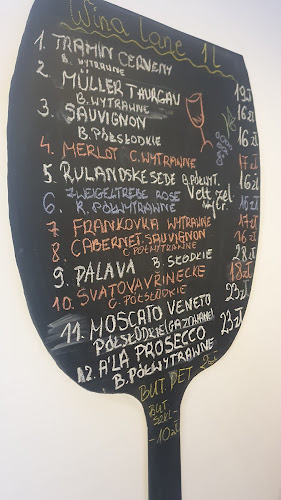 Wina lane 1 l
1. TRAMIN CERVENY 19 zł
B. WYTRAWNE
2. MÜLLER THURGAU 16 zł
B. WYTRAWNE
3. SAUVIGNON 16 zł
B. PÓŁSŁODKIE
4. MERLOT C. WYTRAWNE 17 zł
5. RULANDSKE SEDE B. PÓŁWYT. 16 zł
Velt. zel.
6. ZWEIGELTREBE ROSE
R. PÓŁWYTRAWNE
7 FRANKOVKA WYTRAWNE 17 zł
8. CABERNET. SAUVIGNON 16 zł
C PÓŁWYTRAWNE
9. PALAVA B. SŁODKIE 28 zł
10. SVATOVAVŘINECKE 18 zł
C. PÓŁSŁODKIE
11. MOSCATO VENETO 23 zł
PÓŁSŁODKIE (GAZOWANE)
12. A'LA PROSECCO 23 zł
B. PÓŁWYTRAWNE
BUT. PET 2 zł
BUT
SZKL-
-10 zł